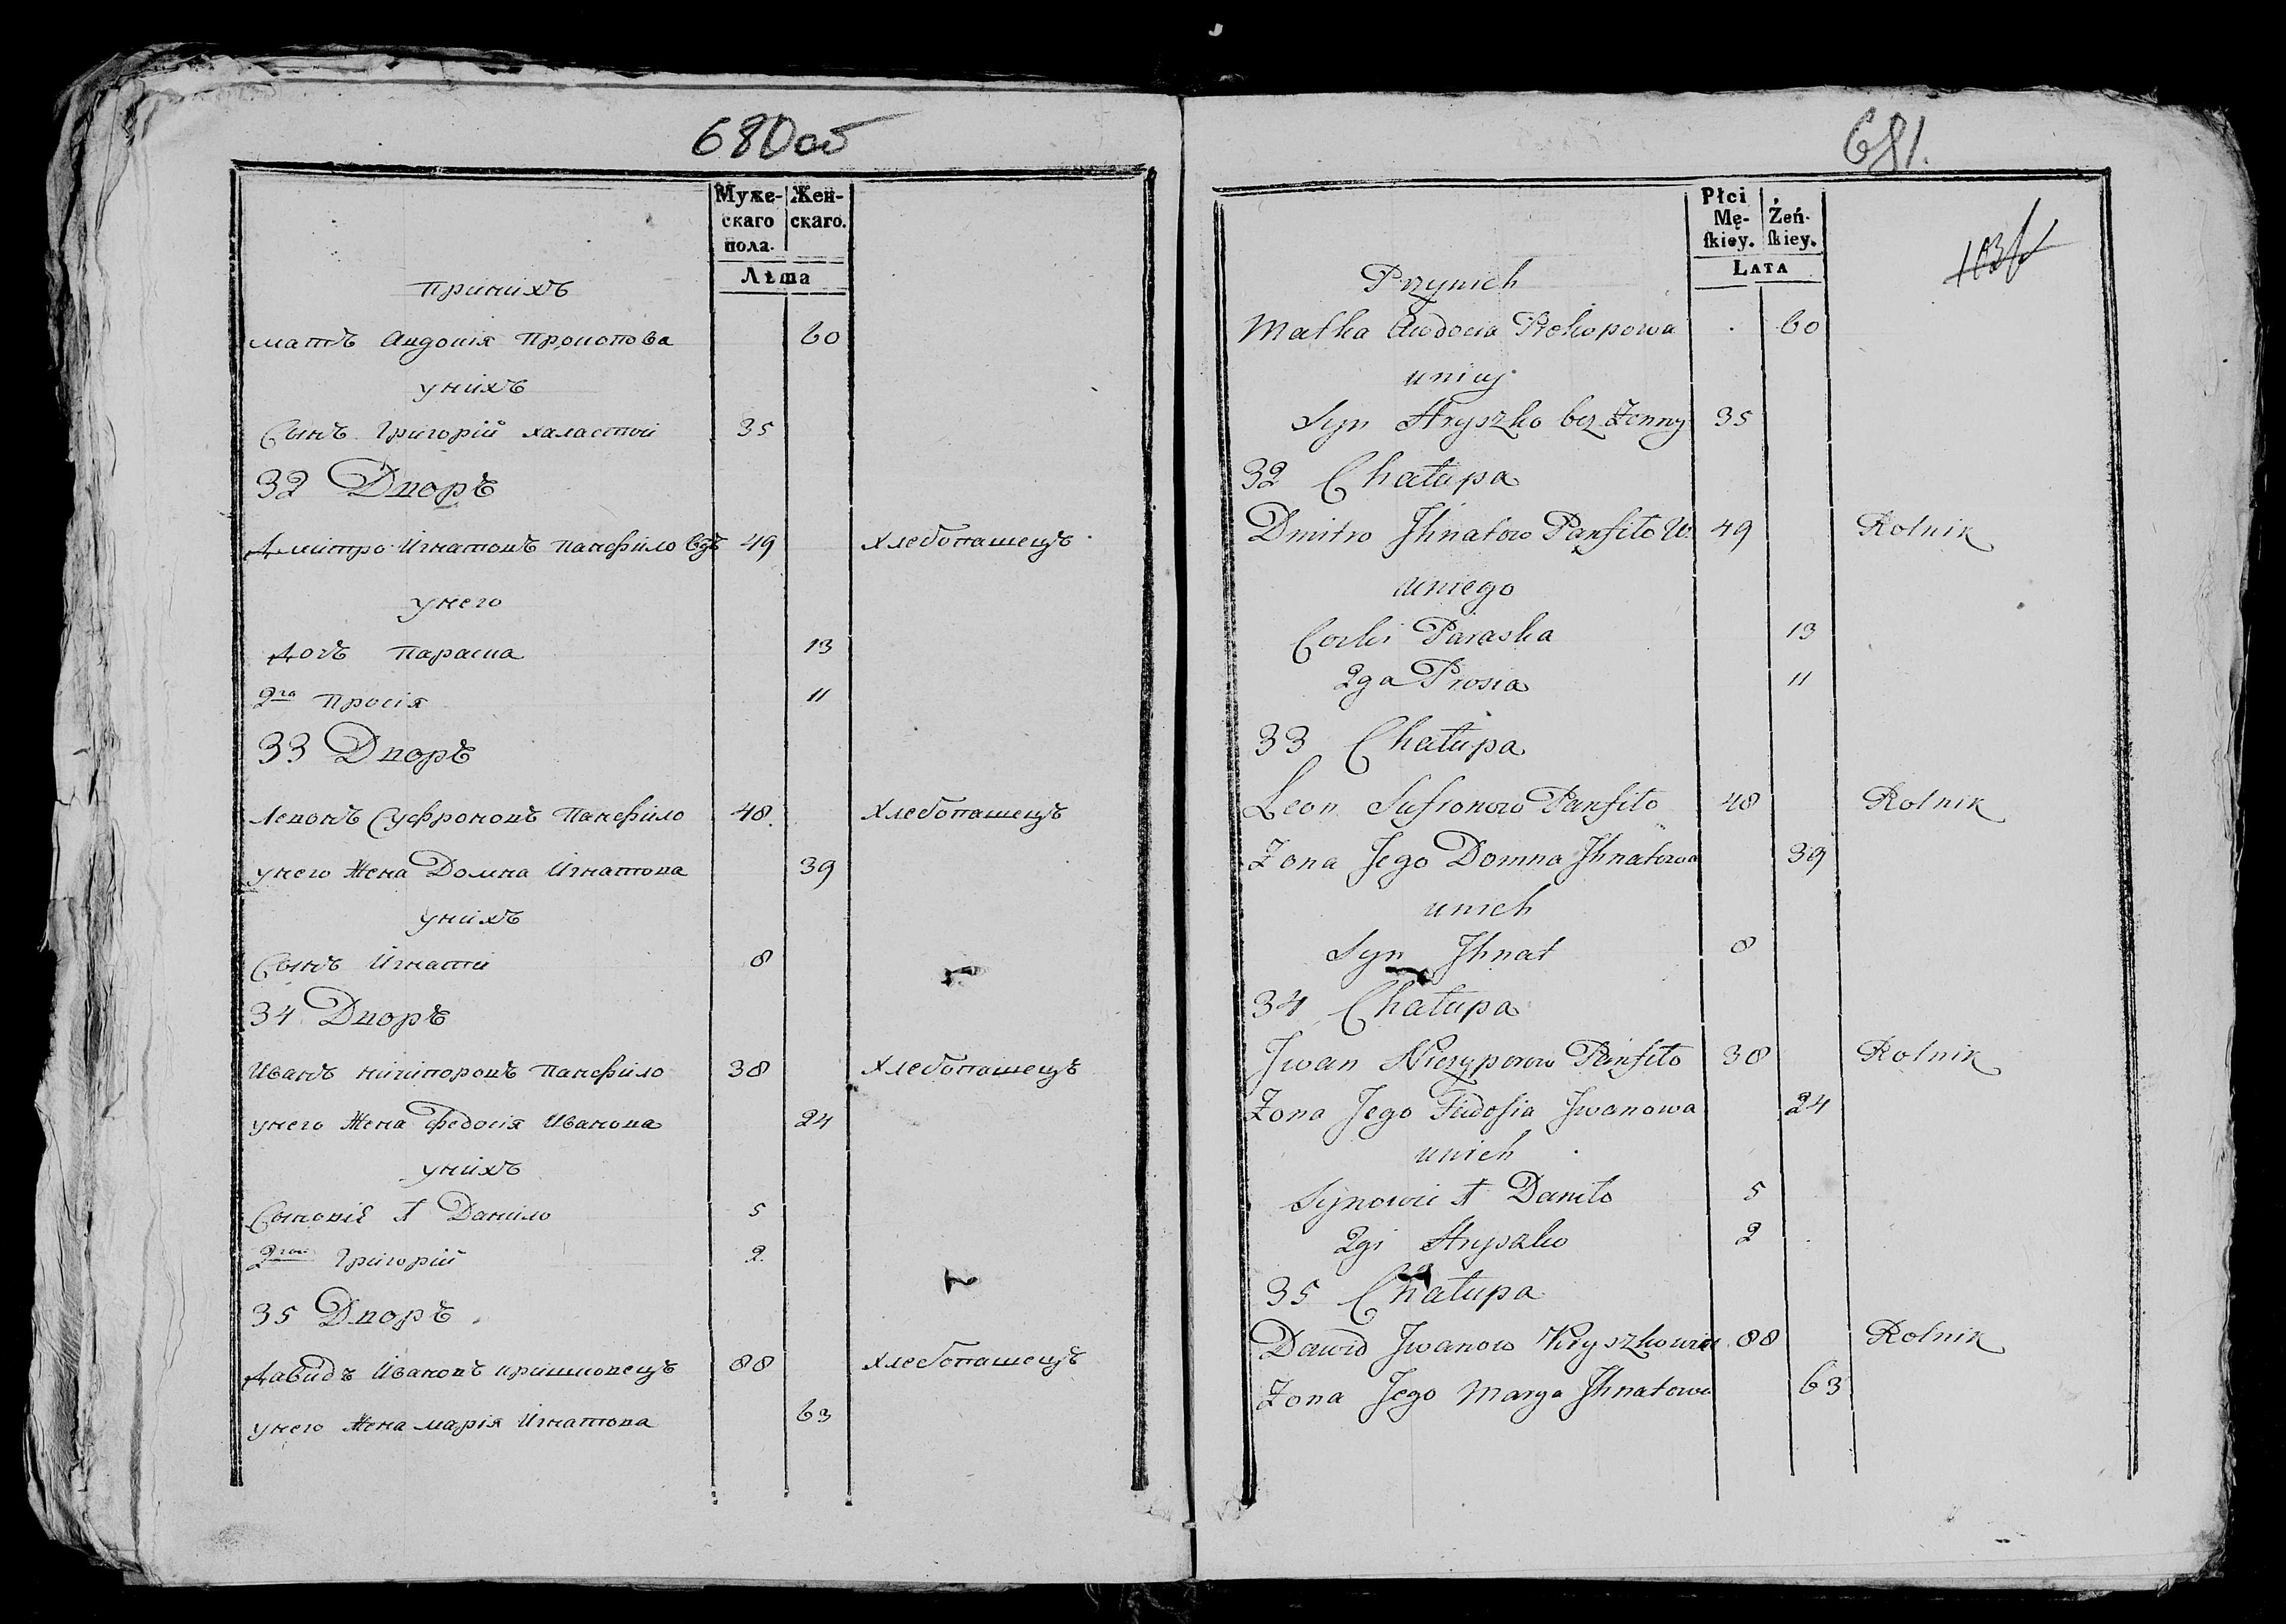 680об
Муже-
скаго
пола.
Жен-
скаго.
Лѣта
при нихъ
мать Авдотія Прокопова 60
у нихъ
Сынъ Григорій халастой 35
32 Дворъ
Дмитро Игнатовъ Панфило вдъ 49 хлебопашецъ
у него
Дочъ Параска 13
2га Просія 11
33 Дворъ
Левонъ Суфроновъ Панфило 48 хлебопашецъ
у него Жена Домна Игнатова 39
у нихъ
Сынъ Игнатій 8
34 Дворъ
Иванъ никипоровъ Панфило 38 хлебопашецъ
у него Жена Федосія Иванова 24
у нихъ
Сыновіѣ 1 Данило 5
2гой Григорій 2
35 Дворъ
Давидъ Ивановъ кришковецъ 88 хлебопашецъ
у него Жена марія Игнатова 63
681.
Płci
Mę-
ſkiey.
Żeń-
ſkiey.
LATA
Przynich
Matka Awdocia Prokopowa 60
unich
Syn Hryszko bez Żonny 35
32 Chałupa
Dmitro Jhnatow Panfiło W. 49 Rolnik
uniego
Corki Paraska 13
2ga Prosia 11
33 Chałupa
Leon Sufronow Panfiło 48 Rolnik
Żona Jego Domna Jhnatowa 39
unich
Syn Jhnat 8
34 Chałupa
Jwan Niczyporow Panfiło 38 Rolnik
Żona Jego Fiedosia Jwanowa 24
unich
Synowie 1 Daniło 5
2gi Hryszko 2
35 Chałupa
Dawid Jwanow Kryszkowiec 88 Rolnik
Żona Jego Marya Jhnatowa 63